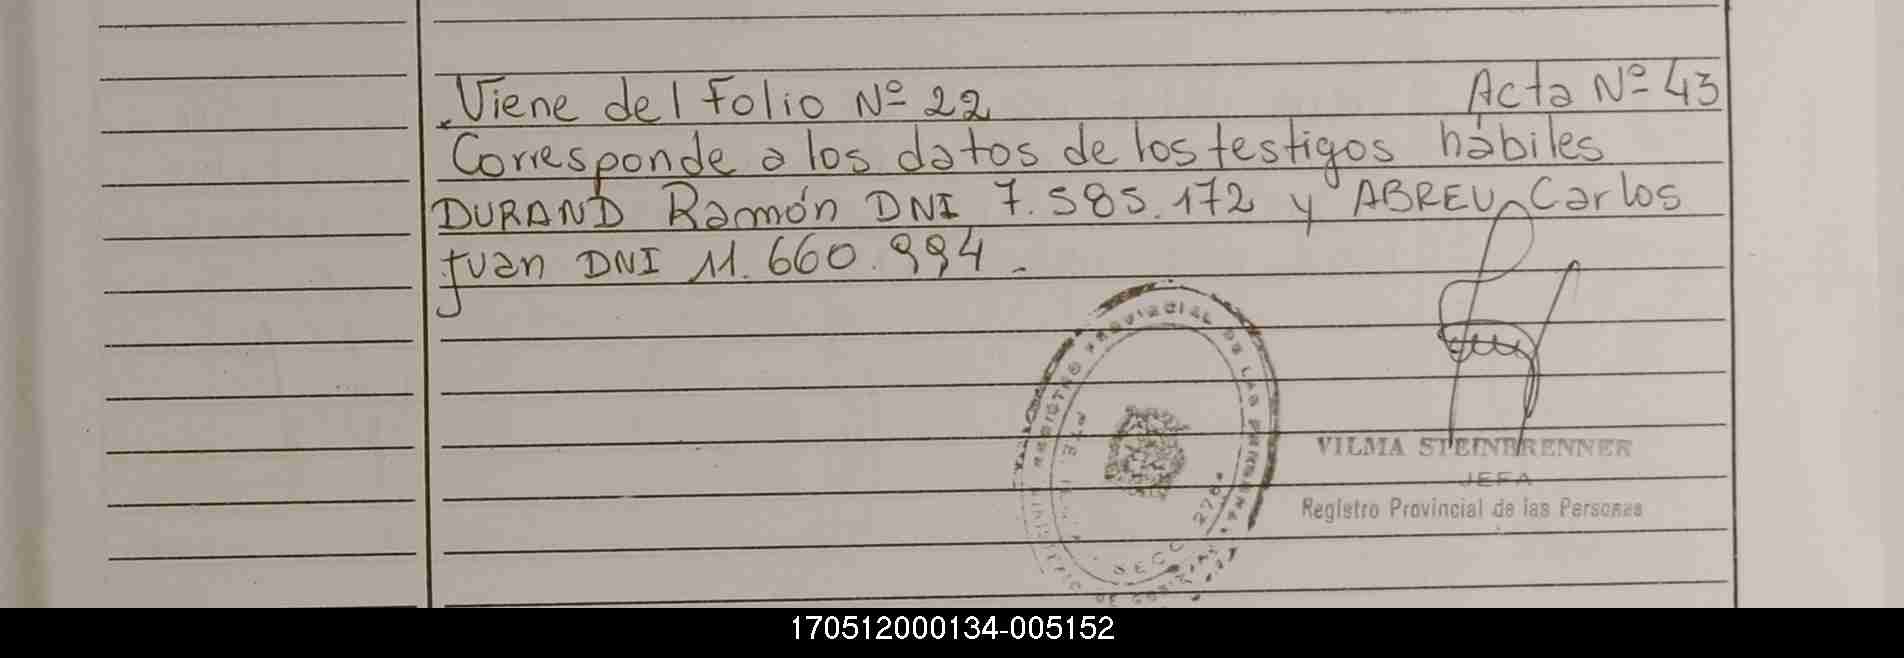 Viene del Folio Nº 22 Acta Nº 43
Corresponde a los datos de los testigos hábiles
DURAND Ramón DNI 7.585.172 y ABREU Carlos
Juan DNI 11.660.994.
REGISTRO PROVINCIAL DE LAS PERSONAS
SECC 270
VILMA STEINBRENNER
JEFA
Registro Provincial de las Personas
170512000134-005152